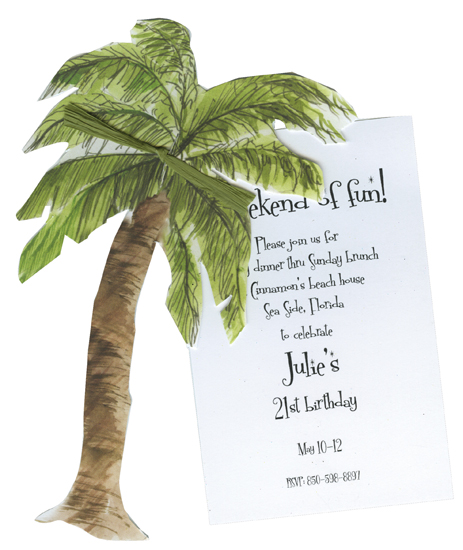 of fun!
Please join us for
dinner thru Sunday brunch
Cinnamon's beach house
Sea Side, Florida
to celebrate
Julie's
21st birthday
May 10-12
RSVP: 850-598-8897